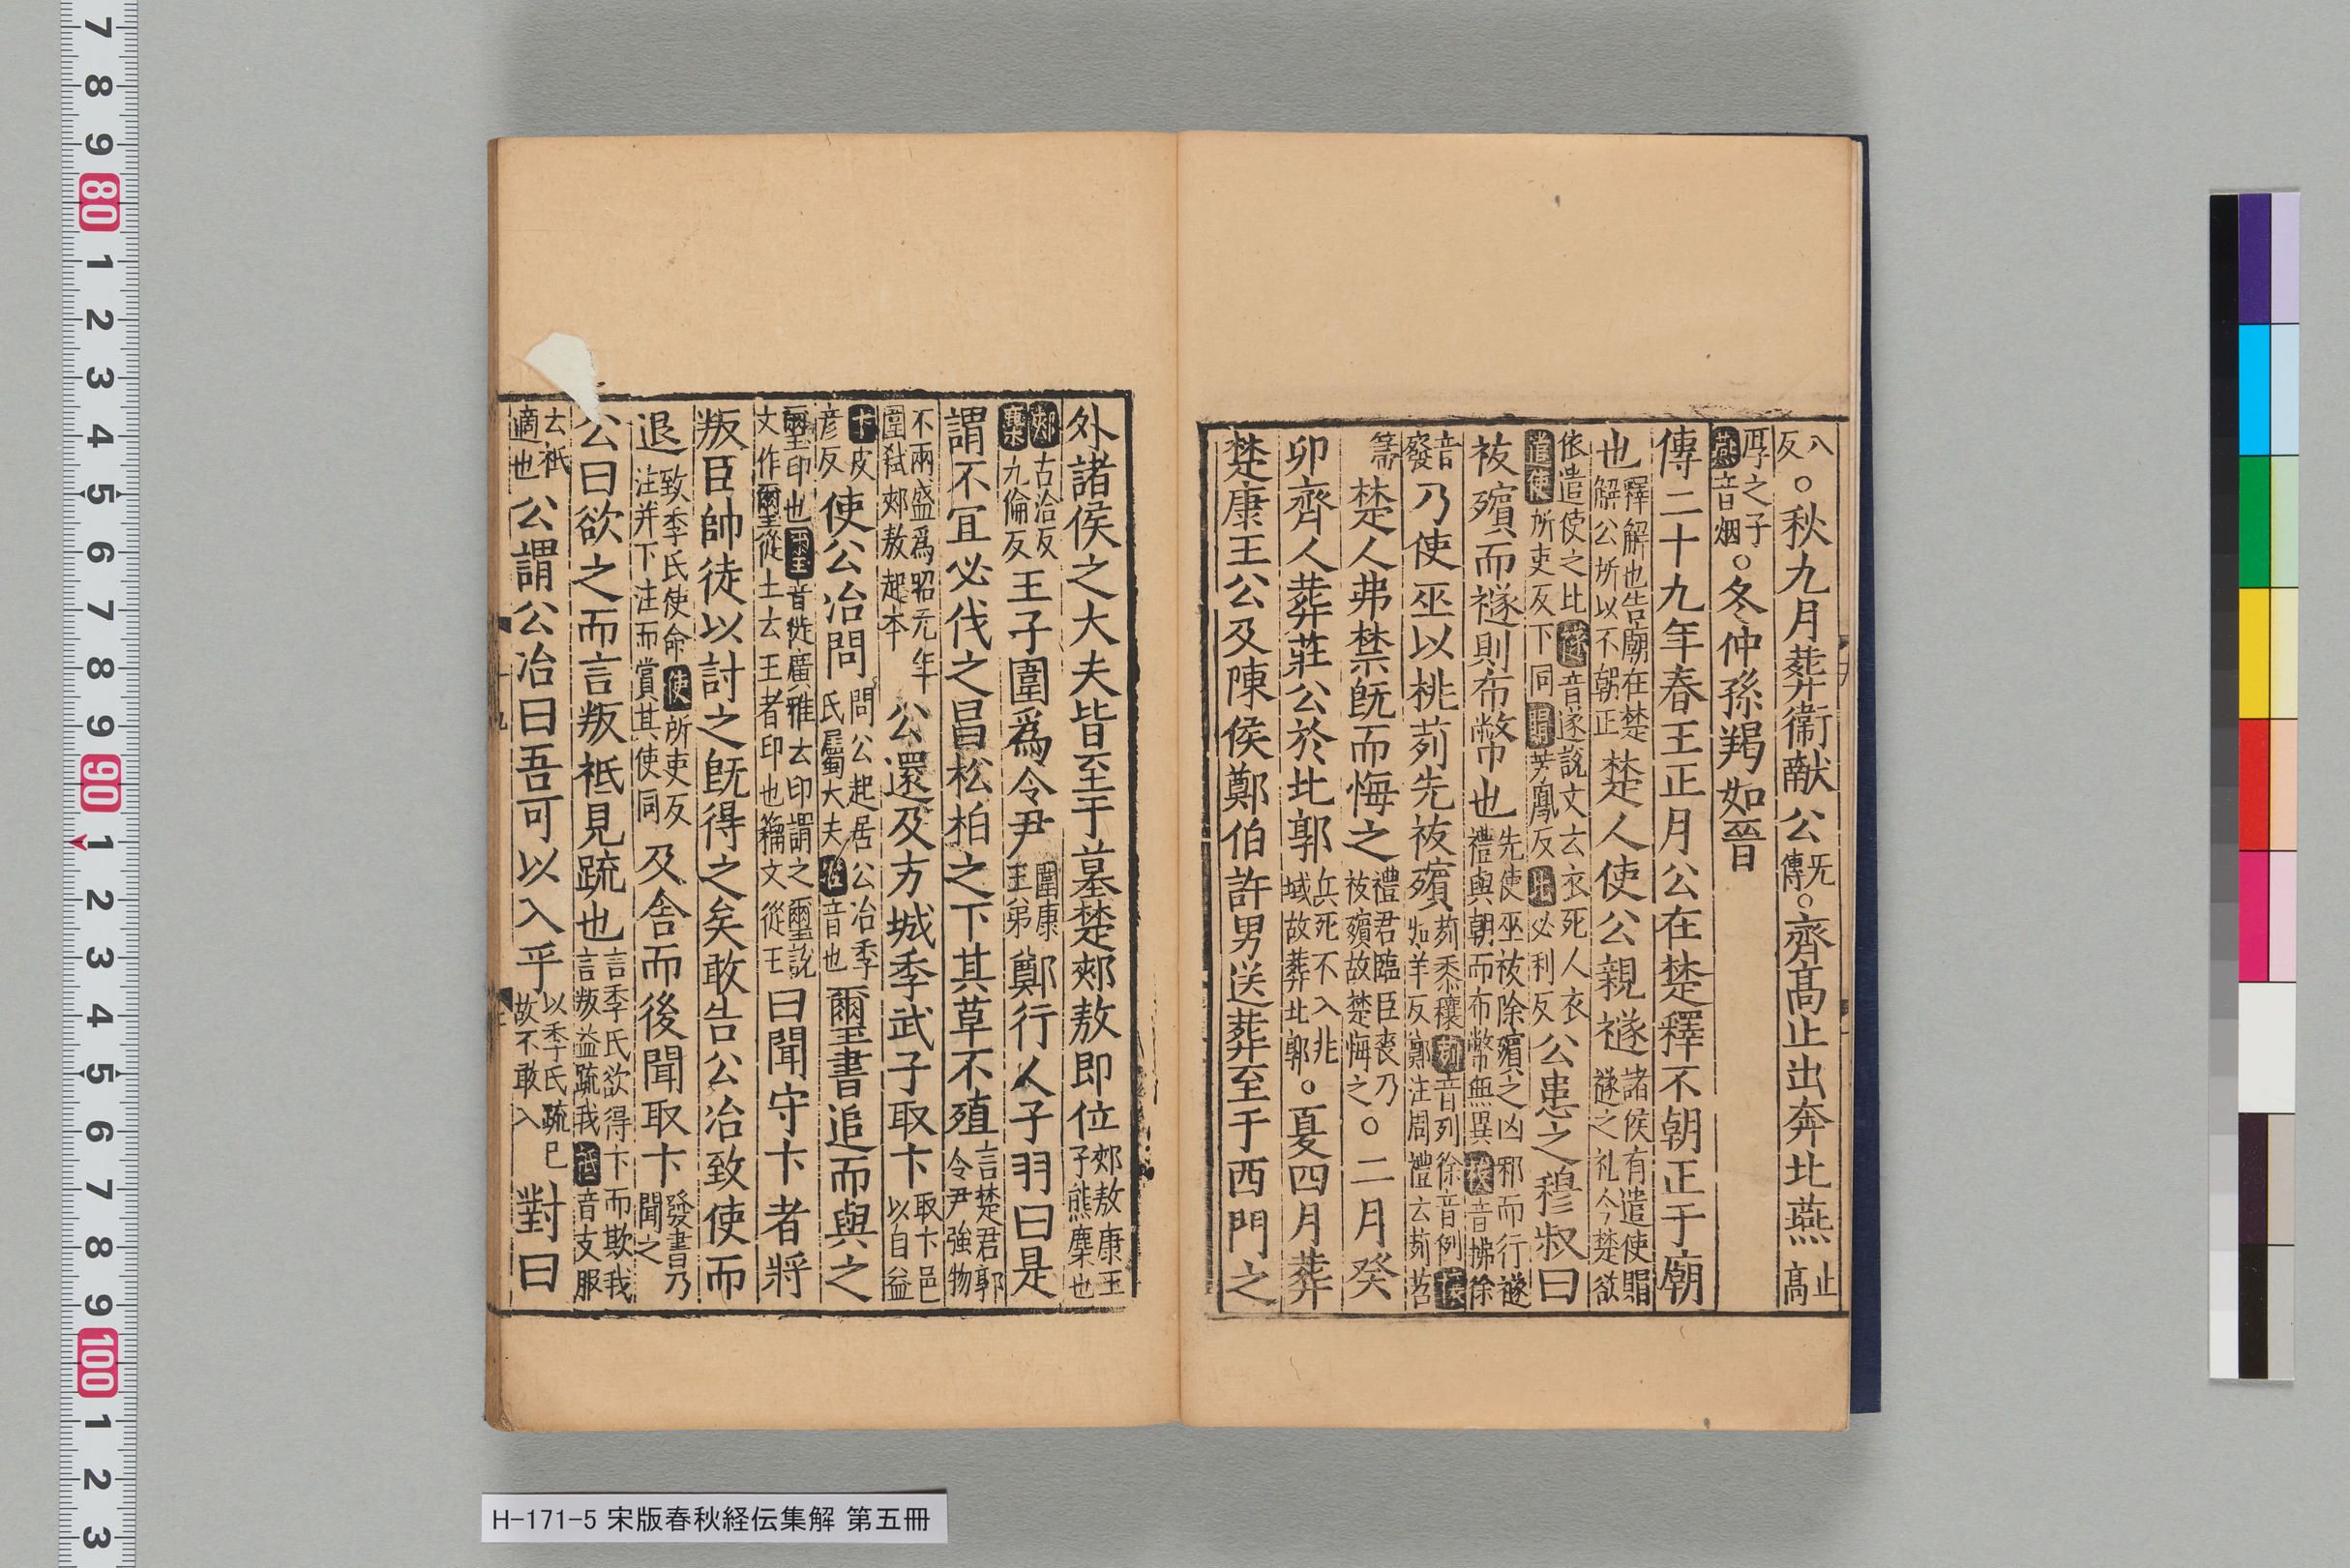 八反○秋九月葬衛献公无傳○齊高止出奔北燕止高
厚之子燕音烟○冬仲孫羯如晉
傳二十九年春王正月公在楚釋不朝正于廟
也釋解也告廟在楚解公所以不朝正楚人使公親襚諸侯有遣使賵襚之礼今楚欲
依遣使之比襚音遂說文云衣死人衣遣使所吏反下同賵芳鳳反比必利反公患之穆叔曰
祓殯而襚則布幣也先使巫祓除殯之凶邪而行襚禮與朝而布幣無異祓音拂徐
音廢乃使巫以桃茢先祓殯茢黍穰茢音列徐音例穰如羊反鄭注周禮云茢苕
箒楚人弗禁既而悔之禮君臨臣喪乃祓殯故楚悔之○二月癸
卯齊人葬莊公於北郭兵死不入兆域故葬北郭○夏四月葬
楚康王公及陳侯鄭伯許男送葬至于西門之
外諸侯之大夫皆至于墓楚郟敖即位郟敖康王子熊麇也
郟古洽反麇九倫反王子圍爲令尹圍康王弟鄭行人子羽曰是
謂不冝必代之昌松柏之下其草不殖言楚君郭令尹強物
不兩盛爲昭元年圍弑郟敖起本公還及方城季武子取卞取卞邑以自益
卞皮彦反使公冶問問公起居公冶季氏屬大夫音也璽書追而與之
璽印也首徙廣雅云印謂之璽說文作璽從土云王者印也籀文從王曰聞守卞者將
叛臣帥徒以討之既得之矣敢告公冶致使而
退致季氏使命使所吏反注并下注而賞其使同及舍而後聞取卞發書乃聞之
公曰欲之而言叛祗見疏也言季氏欲得卞而欺我言叛益疏我祗音支服
云祗適也公謂公冶曰吾可以入乎以季氏疏已故不敢入對曰
十九
H-171-5 宋版春秋経伝集解 第五冊
7 8 9 80 1 2 3 4 5 6 7 8 9 90 1 2 3 4 5 6 7 8 9 100 1 2 3